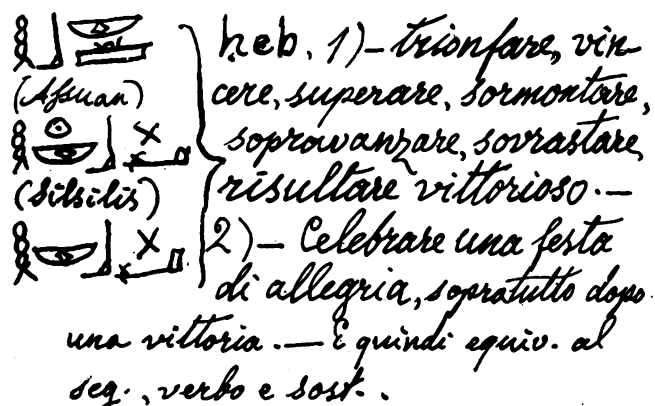 ḥeb. 1)– trionfare, vin-
(Assuan) cere, superare, sormontare,
sopravanzare, sovrastare,
(Silsilis) risultare vittorioso.—
2)– Celebrare una festa
di allegria, sopratutto dopo
una vittoria.— E quindi equiv. al
seg., verbo e sost..